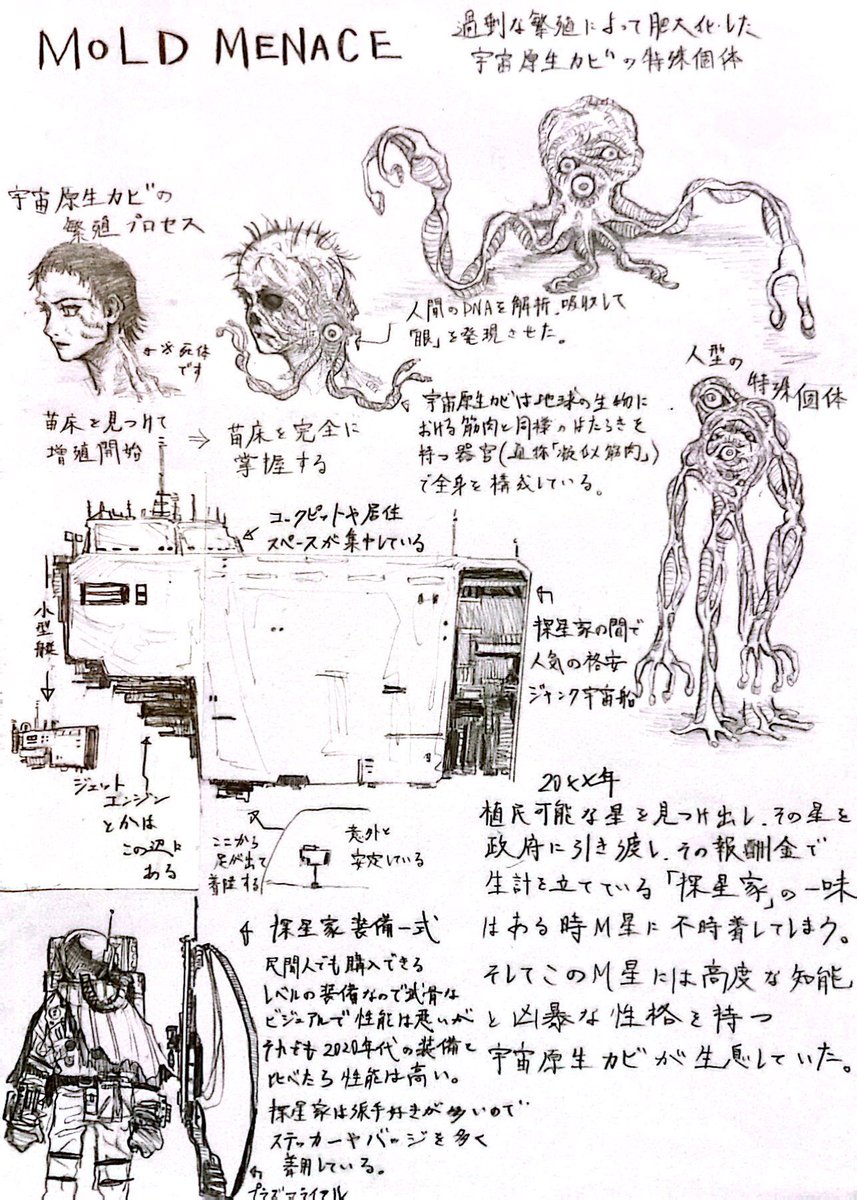 MOLD MENACE
過剰な繁殖によって肥大化した
宇宙原生カビの特殊個体
宇宙原生カビの
繁殖プロセス
※死体
です
人間のDNAを解析、吸収して
「眼」を発現させた。
苗床を見つけて
増殖開始
⇒
苗床を完全に
掌握する
宇宙原生カビは地球の生物に
おける筋肉と同様のはたらきを
持つ器官(通称「擬似筋肉」)
で全身を構成している。
人型の
特殊個体
コックピットや居住
スペースが集中している
小型艇
探星家の間で
人気の格安
ジャンク宇宙船
ジェット
エンジン
とかは
この辺に
ある
ここから
足が出て
着陸する
意外と
安定している
20XX年
植民可能な星を見つけ出し、その星を
政府に引き渡し、その報酬金で
生計を立てている「探星家」の一味
はある時M星に不時着してしまう。
そしてこのM星には高度な知能
と凶暴な性格を持つ
宇宙原生カビが生息していた。
探星家装備一式
民間人でも購入できる
レベルの装備なので武骨な
ビジュアルで性能は悪いが
それでも2020年代の装備と
比べたら性能は高い。
探星家は派手好きが多いので
ステッカーやバッジを多く
着用している。
プラズマライフル